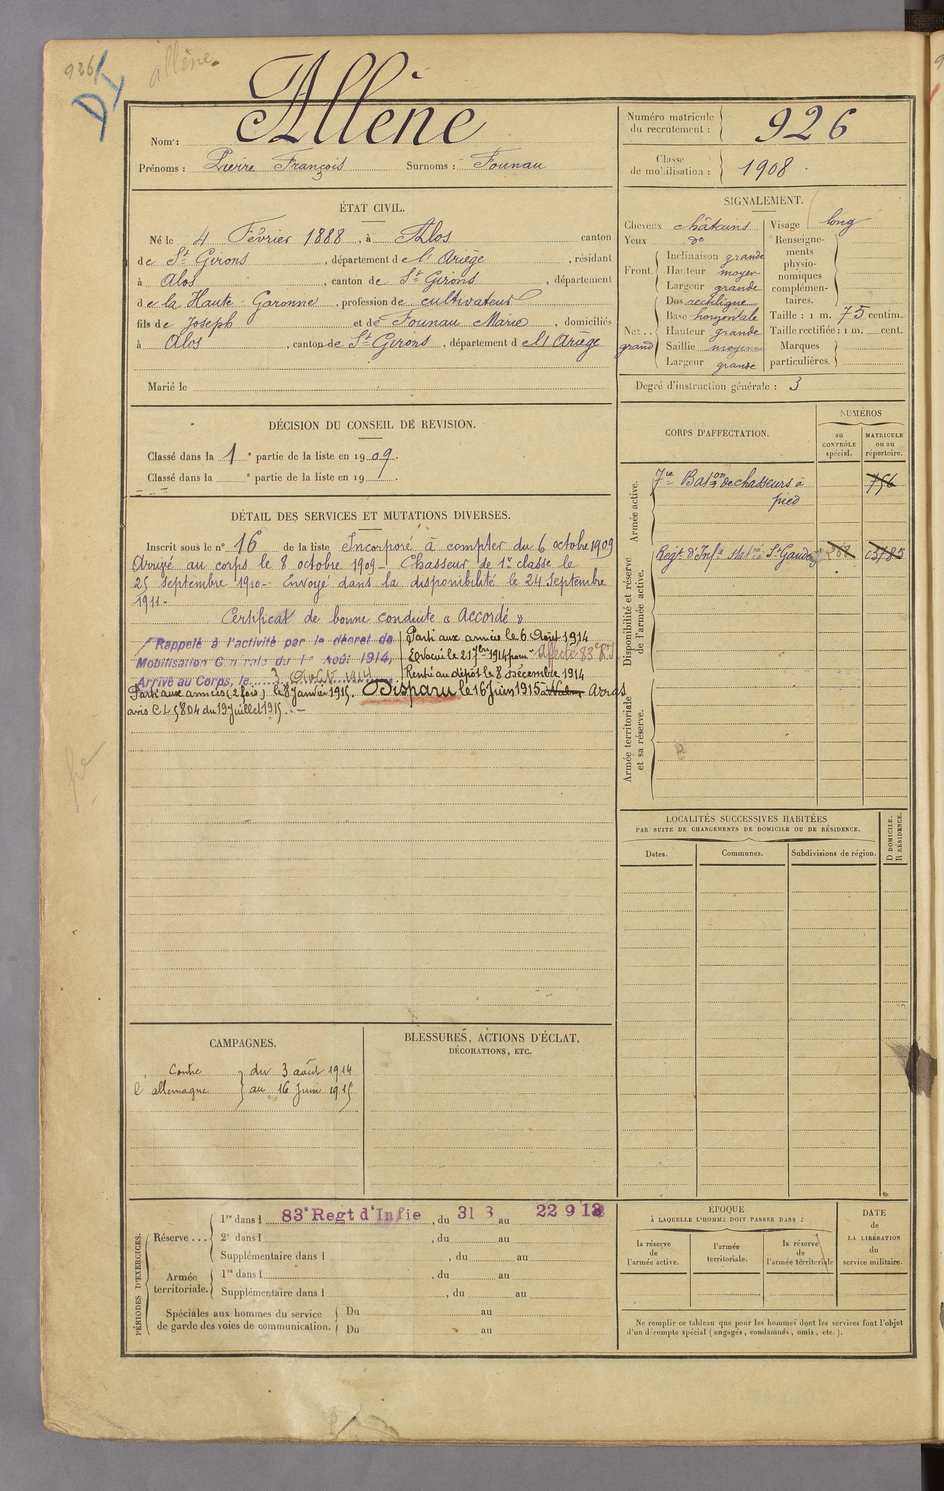 926
allène.
DI
Allène
Nom :
Prénoms : Pierre François Surnoms : Founau
Numéro matricule du recrutement : 926
Classe de mobilisation : 1908
ÉTAT CIVIL.
Né le 4 Février 1888, à Alos canton
de St Girons, département de l'Ariège, résidant
à Alos, canton de St Girons, département
de la Haute-Garonne, profession de cultivateur
fils de Joseph et de Founau Marie, domiciliés
à Alos, canton de St Girons, département de l'Ariège
Marié le
SIGNALEMENT.
Cheveux châtains
Yeux do
Front
Inclinaison grande
Hauteur moyen
Largeur grande
Nez.. grand
Dos rectiligne
Base horizontale
Hauteur grande
Saillie moyenne
Largeur grande
Visage long
Renseignements physionomiques complémentaires.
Taille : 1 m. 75 centim.
Taille rectifiée : 1 m. cent.
Marques particulières.
Degré d'instruction générale : 3
DÉCISION DU CONSEIL DE RÉVISION.
Classé dans la 1 e partie de la liste en 1909.
Classé dans la e partie de la liste en 19
CORPS D'AFFECTATION.
NUMÉROS
au CONTRÔLE spécial.
MATRICULE ou au répertoire.
Armée active.
7me Baton de chasseurs à pied
756
Disponibilité et réserve de l'armée active.
Regt d'Infie stat né à St Gaudens
03785
Armée territoriale et sa réserve.
DÉTAIL DES SERVICES ET MUTATIONS DIVERSES.
Inscrit sous le n° 16 de la liste Incorporé à compter du 6 octobre 1909
Arrivé au corps le 8 octobre 1909 - Chasseur de 1re classe le
25 septembre 1910 - Envoyé dans la disponibilité le 24 Septembre
1911 -
Certificat de bonne conduite « Accordé »
Rappelé à l'activité par le décret de
Mobilisation Générale du 1er Août 1914,
Arrivé au Corps, le 3 Août 1914
Parti aux armées le 6 Août 1914
Evacué le 21 7bre 1914 pour Affecté 83e R.I
Rentré au dépôt le 8 Décembre 1914
Parti aux armées (2 fois) le 8 Janvier 1915. Disparu le 16 Juin 1915 à Arras
avis C.L 5804 du 19 Juillet 1915. -
LOCALITÉS SUCCESSIVES HABITÉES
PAR SUITE DE CHANGEMENTS DE DOMICILE OU DE RÉSIDENCE.
Dates.
Communes.
Subdivisions de région.
D DOMICILE.
R RÉSIDENCE.
CAMPAGNES.
Contre l'allemagne
du 3 août 1914
au 16 Juin 1915
BLESSURES, ACTIONS D'ÉCLAT,
DÉCORATIONS, ETC.
PÉRIODES D'EXERCICES.
Réserve ...
1re dans l 83e Regt d'Infie, du 31 8 au 22 9 13
2e dans l , du au
Supplémentaire dans l , du au
Armée territoriale.
1re dans l , du au
Supplémentaire dans l , du au
Spéciales aux hommes du service
de garde des voies de communication.
Du au
Du au
EPOQUE
À LAQUELLE L'HOMME DOIT PASSER DANS :
la réserve de l'armée active.
l'armée territoriale.
la réserve de l'armée térritoriale
DATE
de
LA LIBÉRATION
du
service militaire.
Ne remplir ce tableau que pour les hommes dont les services font l'objet
d'un décompte spécial (engagés, condamnés, omis, etc.).